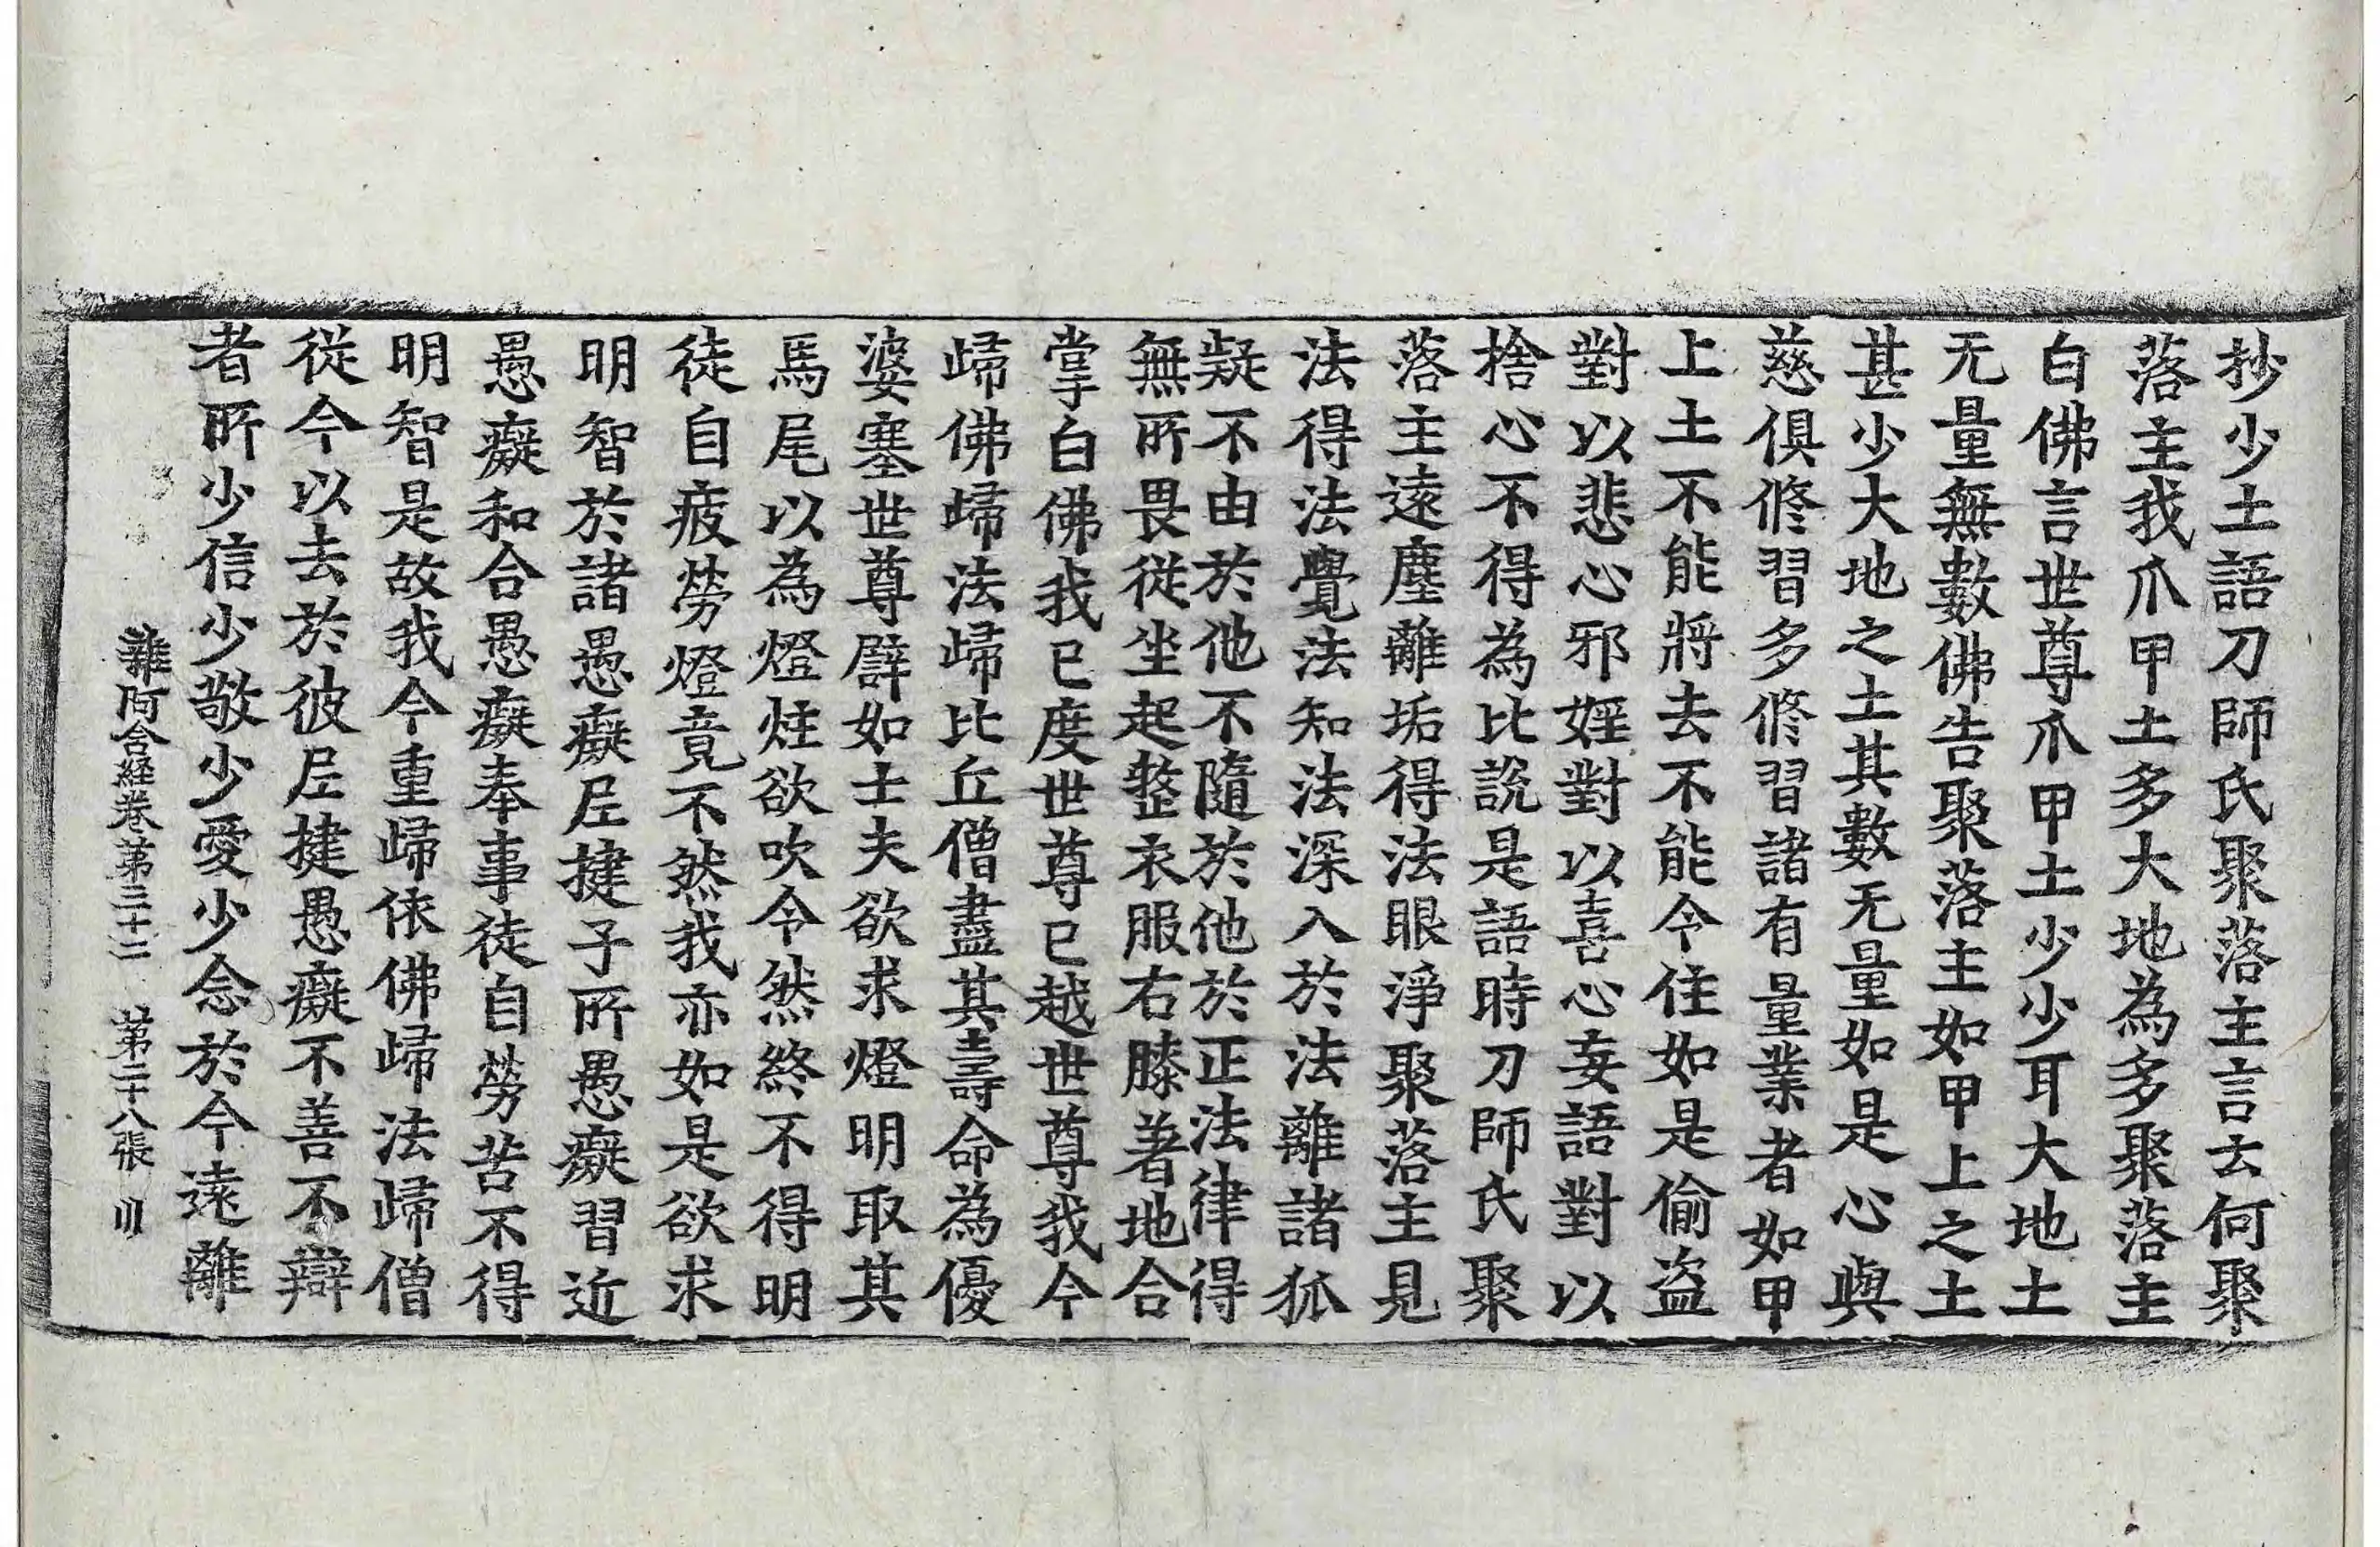 抄少土語刀師氏聚落主言云何聚
落主我爪甲土多大地為多聚落主
白佛言世尊爪甲土少少耳大地土
无量無數佛告聚落主如甲上之土
甚少大地之土其數无量如是心與
慈俱修習多修習諸有量業者如甲
上土不能將去不能令住如是偷盗
對以悲心邪婬對以喜心妄語對以
捨心不得為比說是語時刀師氏聚
落主遠塵離垢得法眼淨聚落主見
法得法覺法知法深入於法離諸狐
疑不由於他不隨於他於正法律得
無所畏從坐起整衣服右膝著地合
掌白佛我已度世尊已越世尊我今
歸佛歸法歸比丘僧盡其壽命為優
婆塞世尊譬如士夫欲求燈明取其
馬尾以為燈炷欲吹令然終不得明
徒自疲勞燈竟不然我亦如是欲求
明智於諸愚癡尼揵子所愚癡習近
愚癡和合愚癡奉事徒自勞苦不得
明智是故我今重歸依佛歸法歸僧
從今以去於彼尼揵愚癡不善不辯
者所少信少敬少愛少念於今遠離
雜阿含経巻第三十二　第二十八張　川